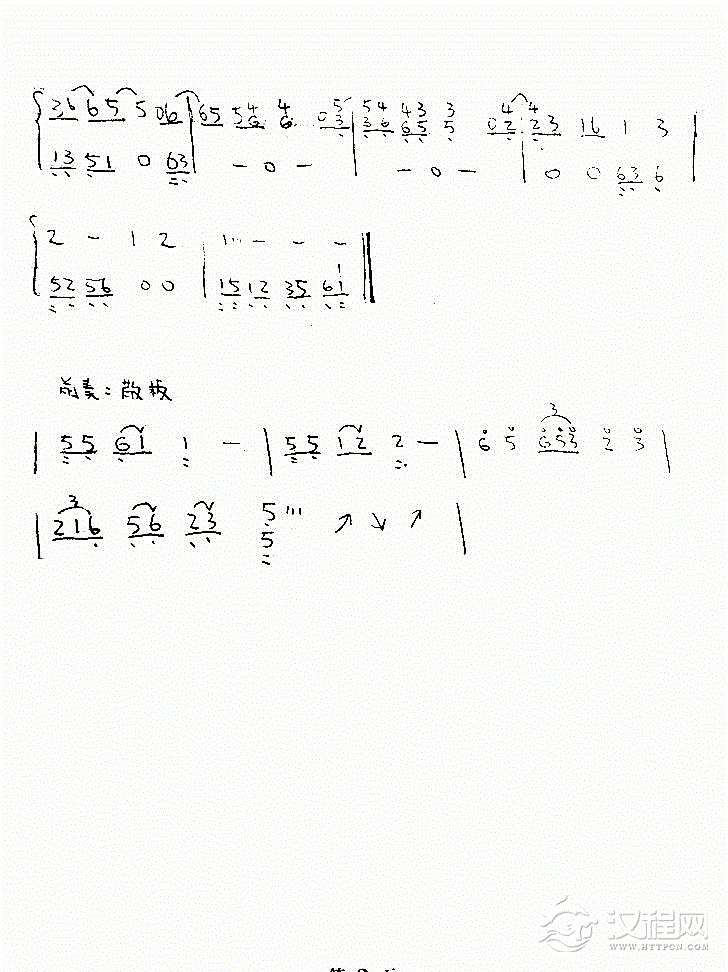 36 65 5 06 | 65 5 4 6 4 6 0 5 3 | 5 4 3 6 4 3 6 5 3 5 0 4 2 | 4 2 3 16 1 3 |
13 51 0 63 | - 0 - | - 0 - | 0 0 63 6 |
2 - 1 2 | 1 - - -
52 56 0 0 | 15 12 35 61 1
前奏:散板
| 55 61 1 - | 55 12 2 - | 6 5 653 2 3 |
3
| 216 56 23 5 5 ↗ ↘ ↗ |
3
汉程网
WWW.HTTPCN.COM